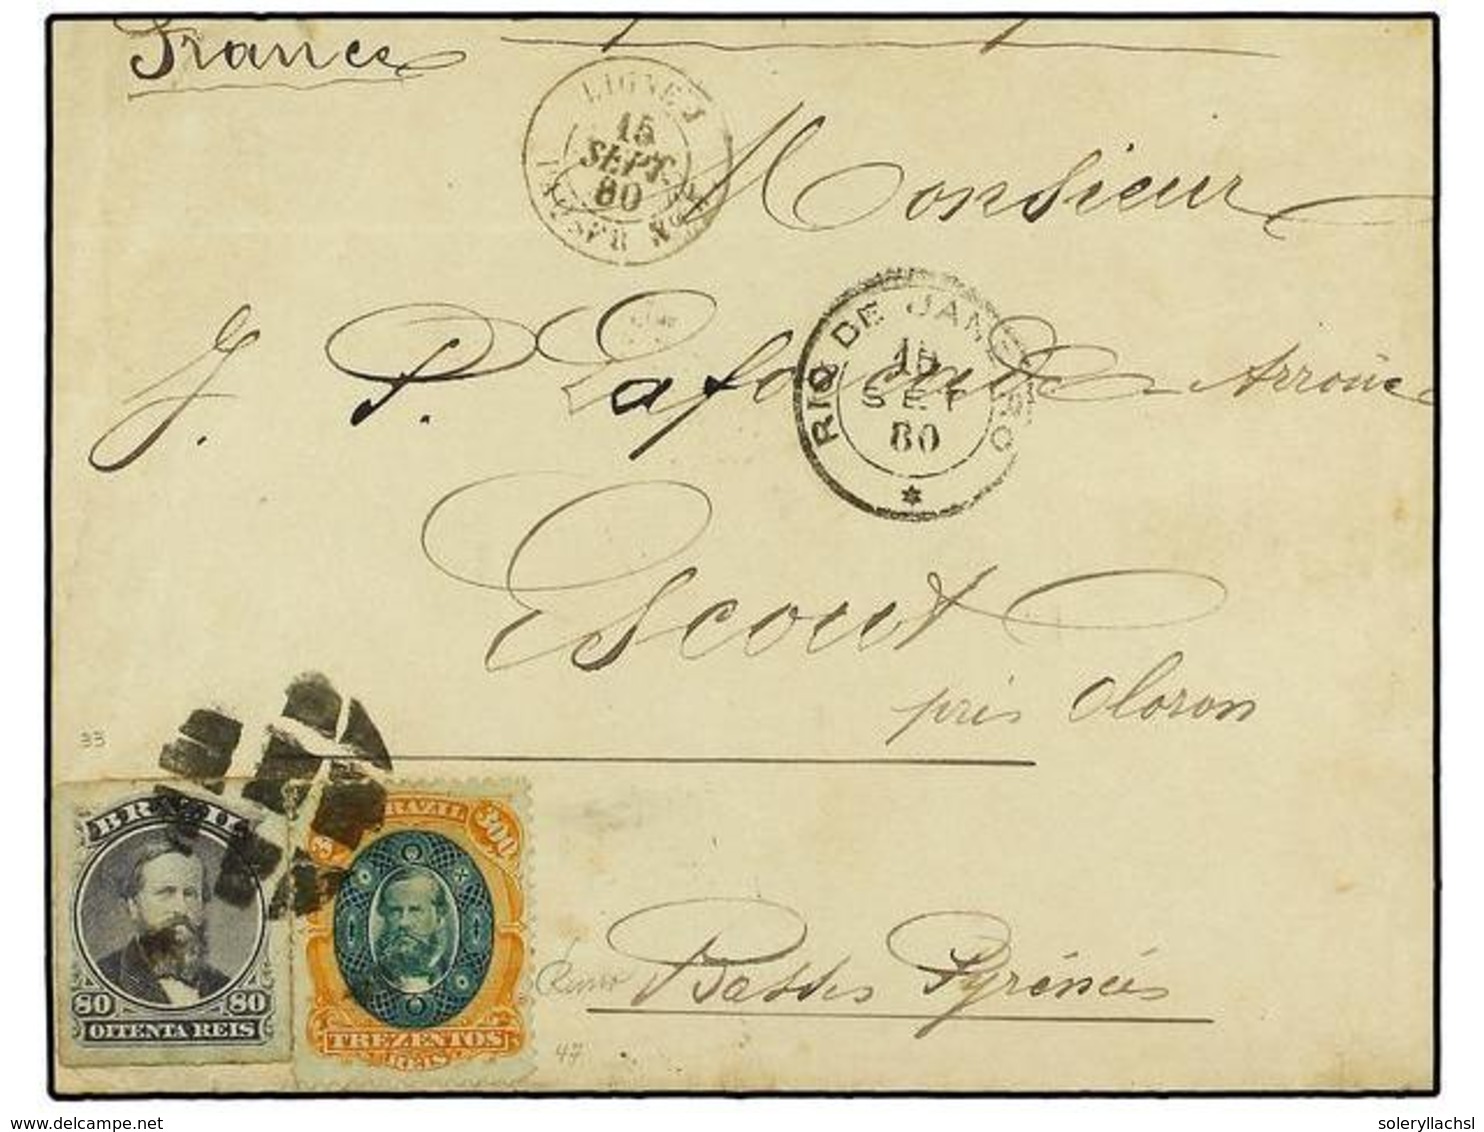 France
LIGNE J
15
SEPT.
80
PAQ. FR. No
Monsieur
RIO DE JANEIRO
15
SET
80
J. P. Lafourcade
Escout
près Oloron
33
BRAZIL
80 80
OITENTA REIS
BRAZIL
300
TREZENTOS
REIS
47
Basses Pyrénées
delcampe.net
soleryllachsl